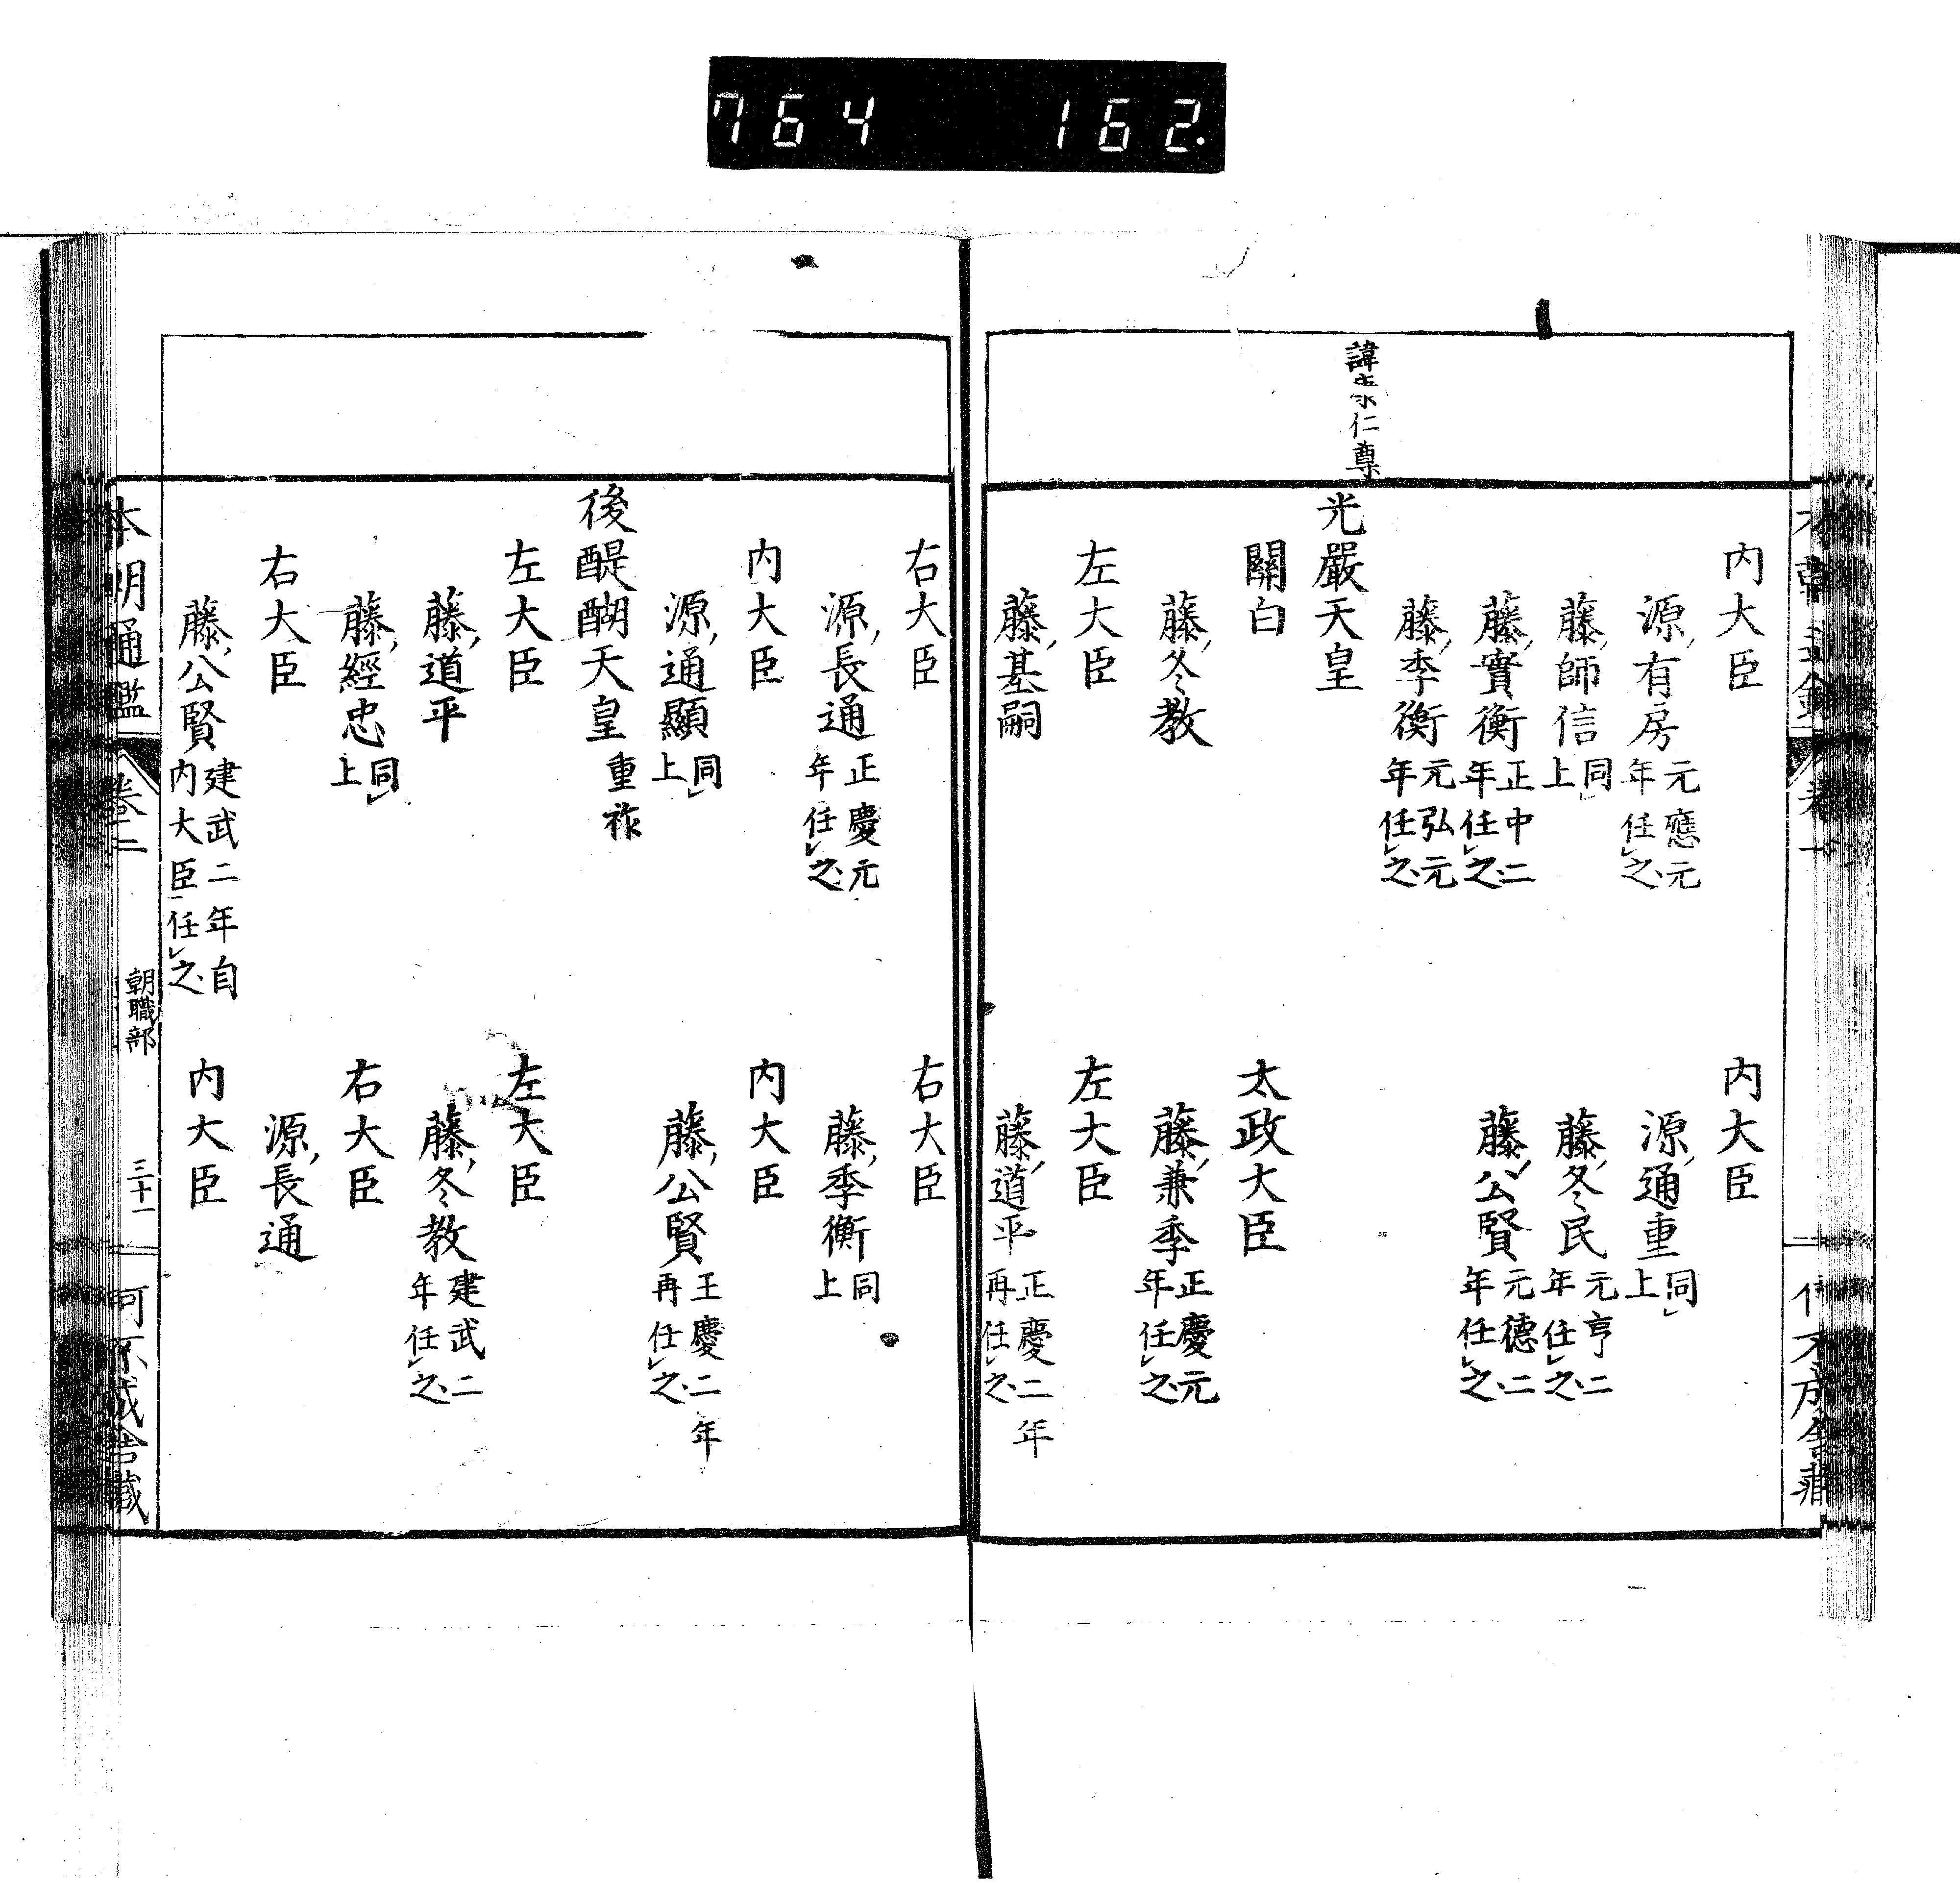 764 162
内大臣 内大臣
源有房 元應元年任之 源通重 同上
藤師信 同上 藤冬民 元亨二年任之
藤實衡 正中二年任之 藤公賢 元德二年任之
藤季衡 元弘元年任之
諱 仁尊
光嚴天皇
關白 太政大臣
藤冬教 藤兼季 正慶元年任之
左大臣 左大臣
藤基嗣 藤道平 正慶二年再任之
右大臣 右大臣
源長通 正慶元年任之 藤季衡 同上
内大臣 内大臣
源通顯 同上 藤公賢 王慶二年再任之
後醍醐天皇 重祚
左大臣 左大臣
藤道平 藤冬教 建武二年任之
藤經忠 同上 右大臣
右大臣 源長通
藤公賢 建武二年自内大臣任之 内大臣
本朝通鑑 卷二 朝職部 三十一